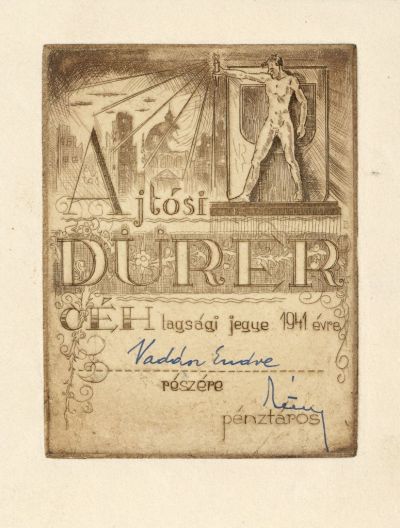 Ajtósi
DÜRER
CÉH tagsági jegye 1941 évre
Endre
részére
pénztáros